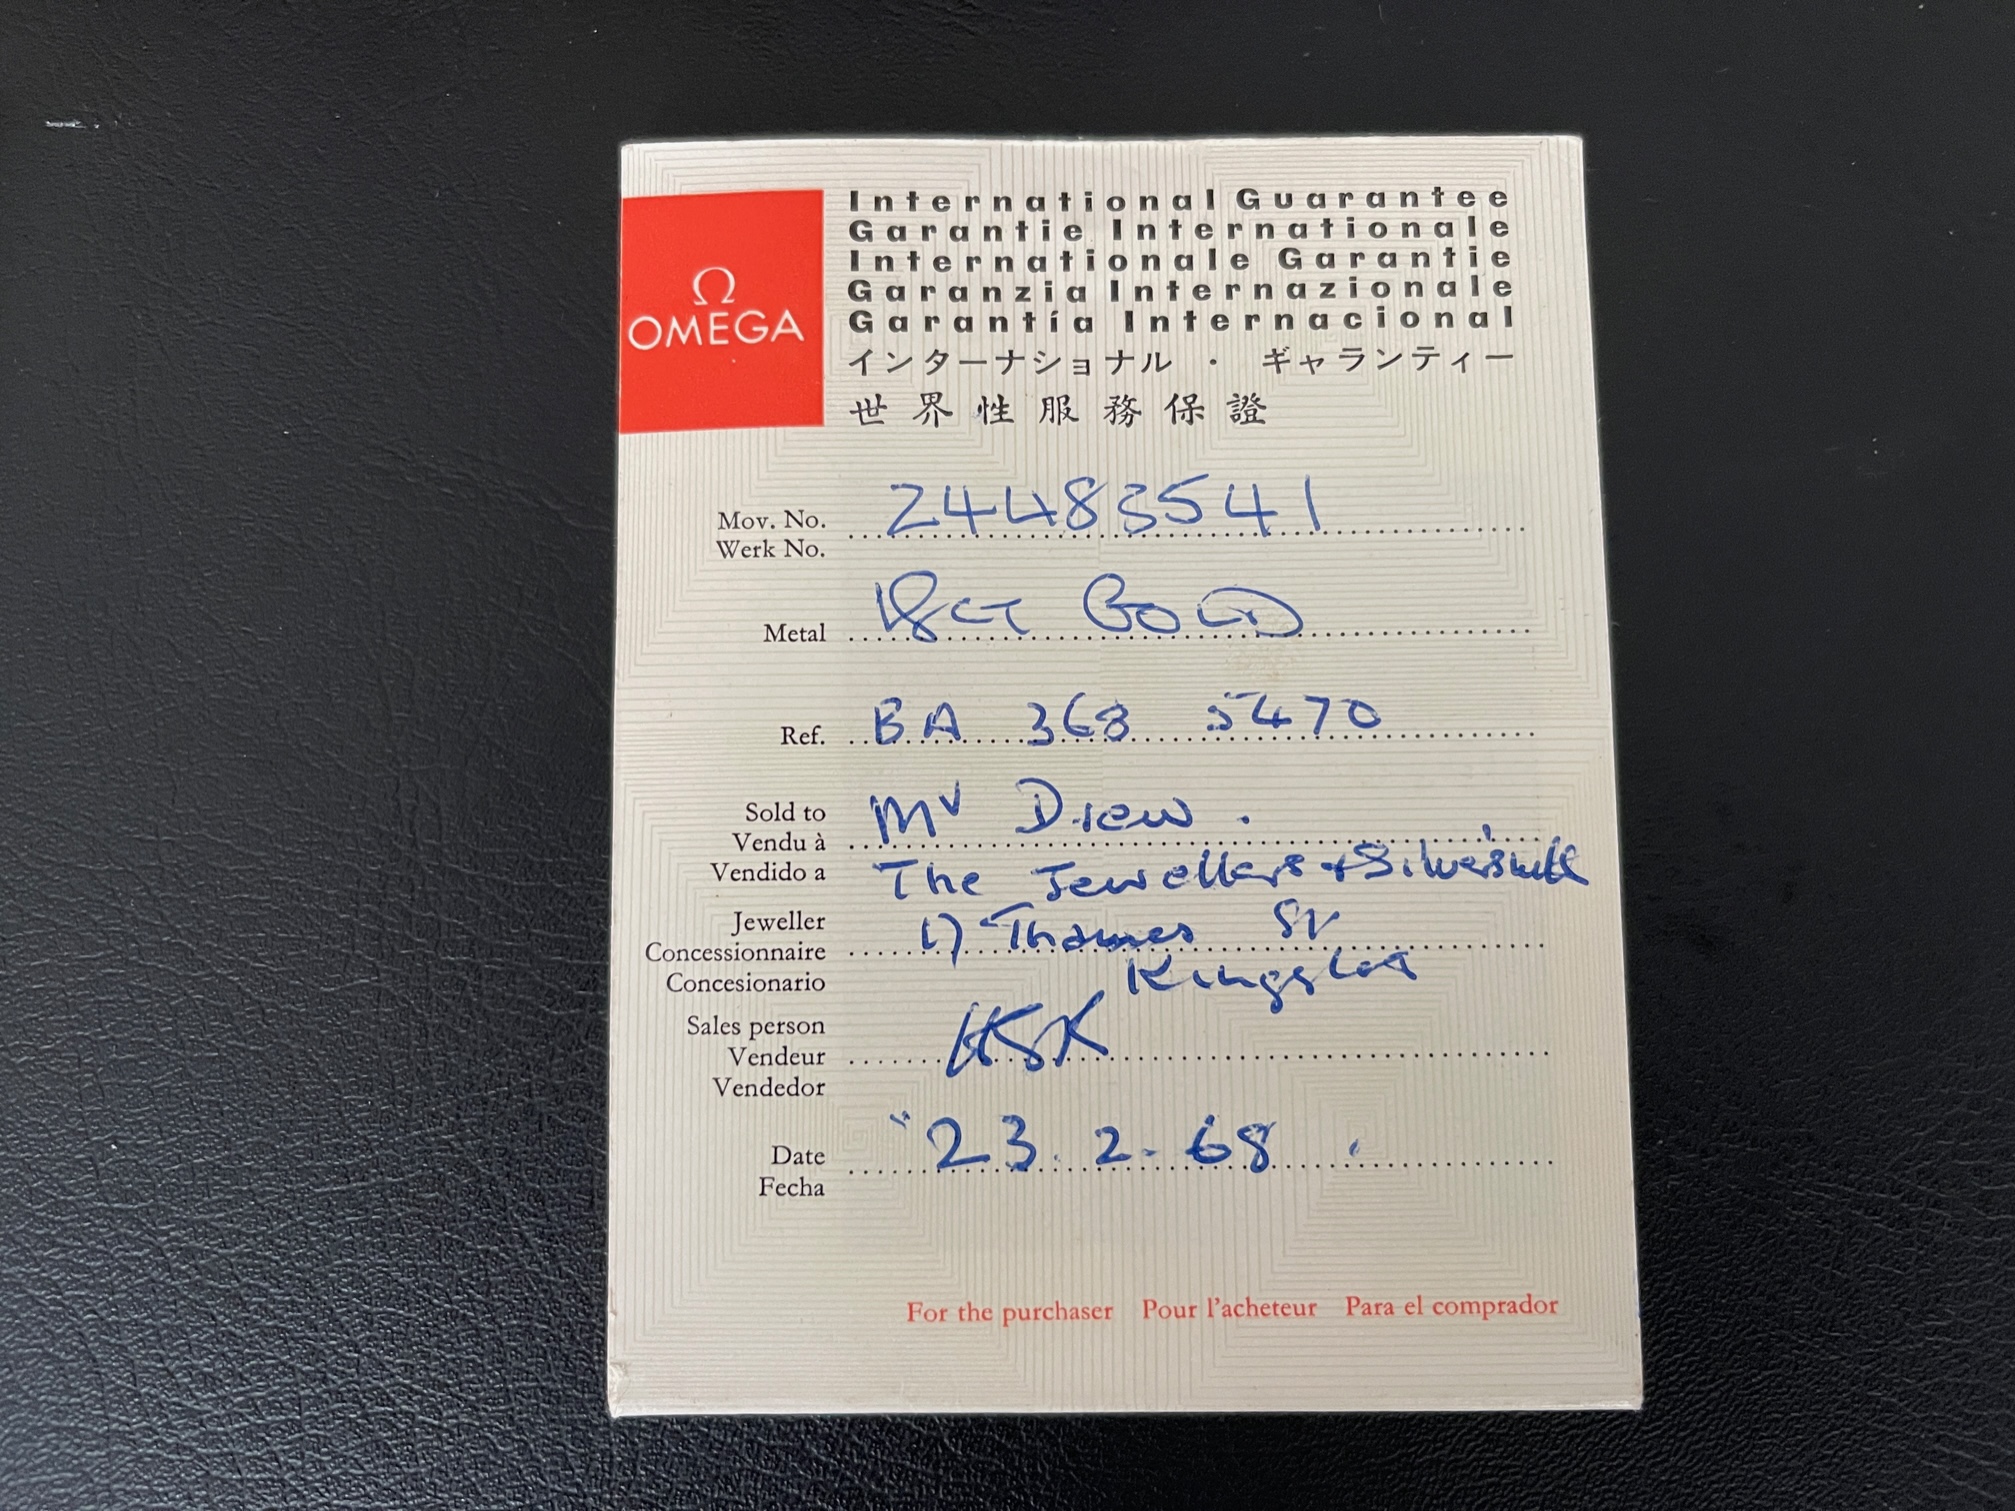 Ω
OMEGA
International Guarantee
Garantie Internationale
Internationale Garantie
Garanzia Internazionale
Garantía Internacional
インターナショナル・ギャランティー
世界性服務保證
Mov. No. 24483541
Werk No.
Metal 18CT GOLD
Ref. BA 368 5470
Sold to Mr Drew.
Vendu à
Vendido a The Jewellers +
Jeweller
Concessionnaire 17 Thames St
Concesionario Kingston
Sales person
Vendeur
Vendedor
Date 23.2.68
Fecha
For the purchaser Pour l'acheteur Para el comprador